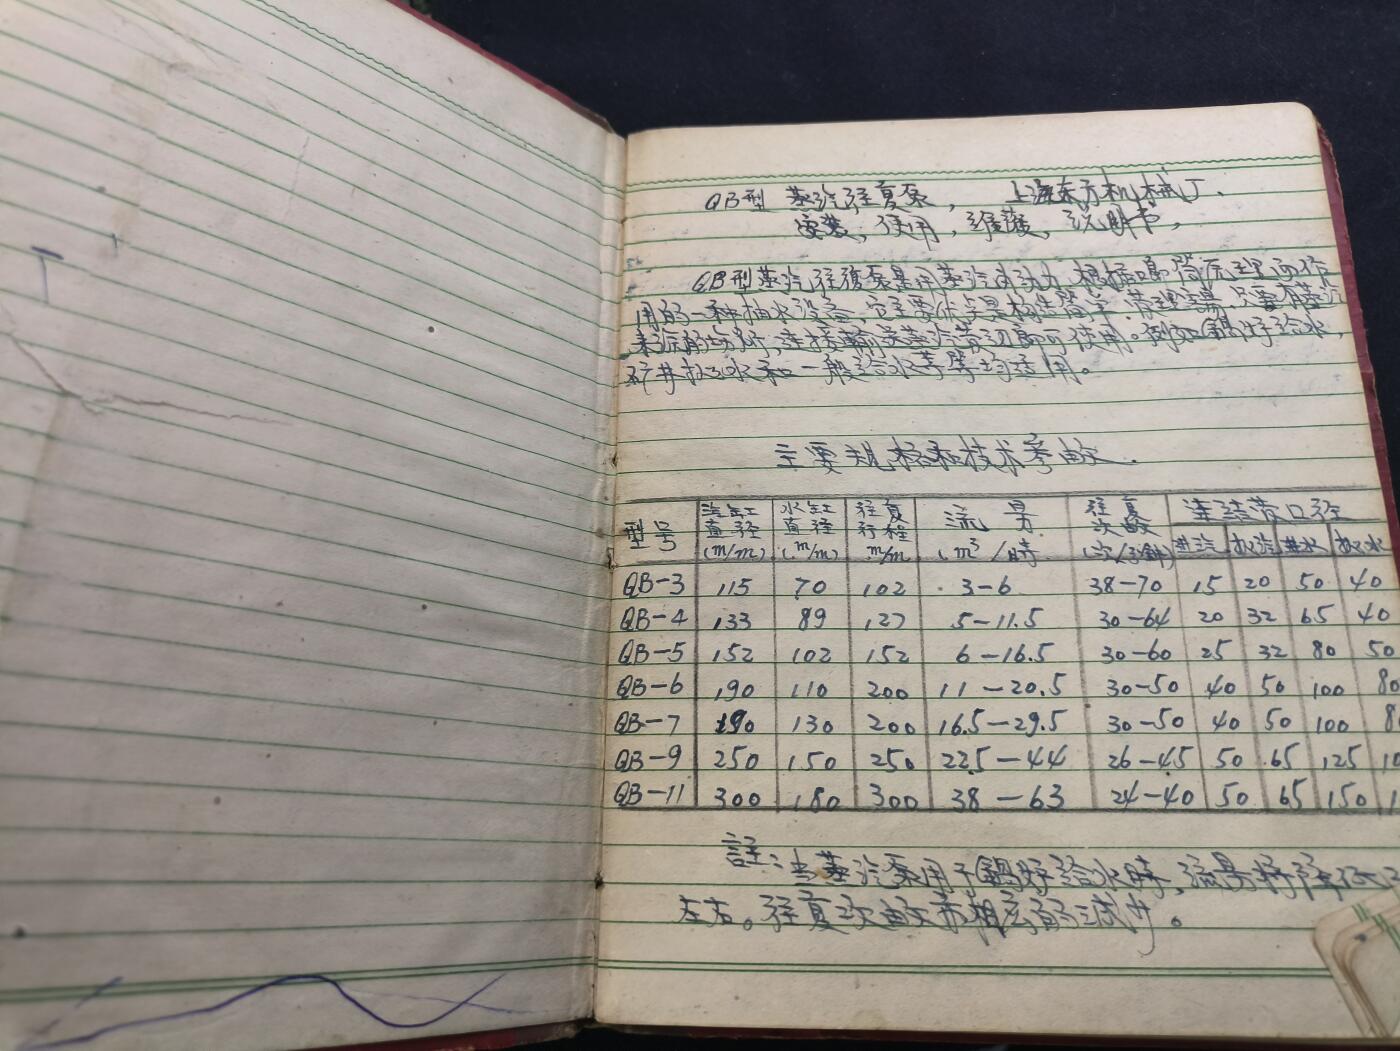 QB型 蒸汽往复泵， 上海东方机械厂.
安装，使用，维护，说明书，
QB型蒸汽往复泵是用蒸汽为动力，根据唧筒原理而作
用的一种抽水设备，它主要优点是构造简单，管理容易，只要有蒸汽
来源的场所，连接输送蒸汽管切即可使用。例如鍋炉给水，
矿井排水和一般给水等等均适用。
主要规格和技术参数
型号 汽缸直径(m/m) 水缸直径(m/m) 往复行程m/m 流量(m³/時 往复次数(次/分鈡) 连结管口径 进汽 排汽 进水 排水
QB-3 115 70 102 3-6 38-70 15 20 50 40
QB-4 133 89 127 5-11.5 30-64 20 32 65 40
QB-5 152 102 152 6-16.5 30-60 25 32 80 50
QB-6 190 110 200 11-20.5 30-50 40 50 100 80
QB-7 190 130 200 16.5-29.5 30-50 40 50 100 8
QB-9 250 150 250 22.5-44 26-45 50 65 125 10
QB-11 300 180 300 38-63 24-40 50 65 150 1
註：当蒸汽泵用于鍋炉给水時，流量将降低
左右。往复次数亦相应的减少。